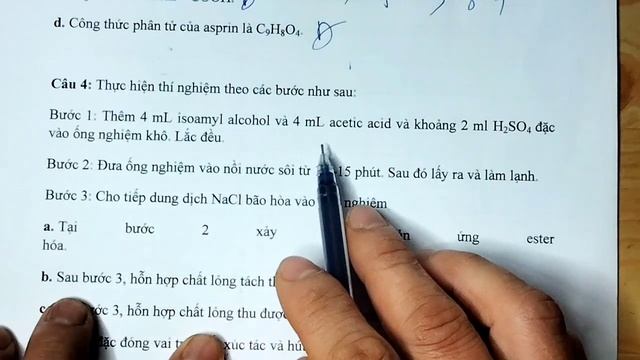 d. Công thức phân tử của asprin là C₉H₈O₄. Đ
Câu 4: Thực hiện thí nghiệm theo các bước như sau:
Bước 1: Thêm 4 mL isoamyl alcohol và 4 mL acetic acid và khoảng 2 ml H₂SO₄ đặc
vào ống nghiệm khô. Lắc đều.
Bước 2: Đưa ống nghiệm vào nồi nước sôi từ 15 phút. Sau đó lấy ra và làm lạnh.
Bước 3: Cho tiếp dung dịch NaCl bão hòa vào nghiệm
a. Tại bước 2 xảy ứng ester
hóa.
b. Sau bước 3, hỗn hợp chất lỏng tách
3, hỗn hợp chất lỏng thu được
đóng vai xúc tác và